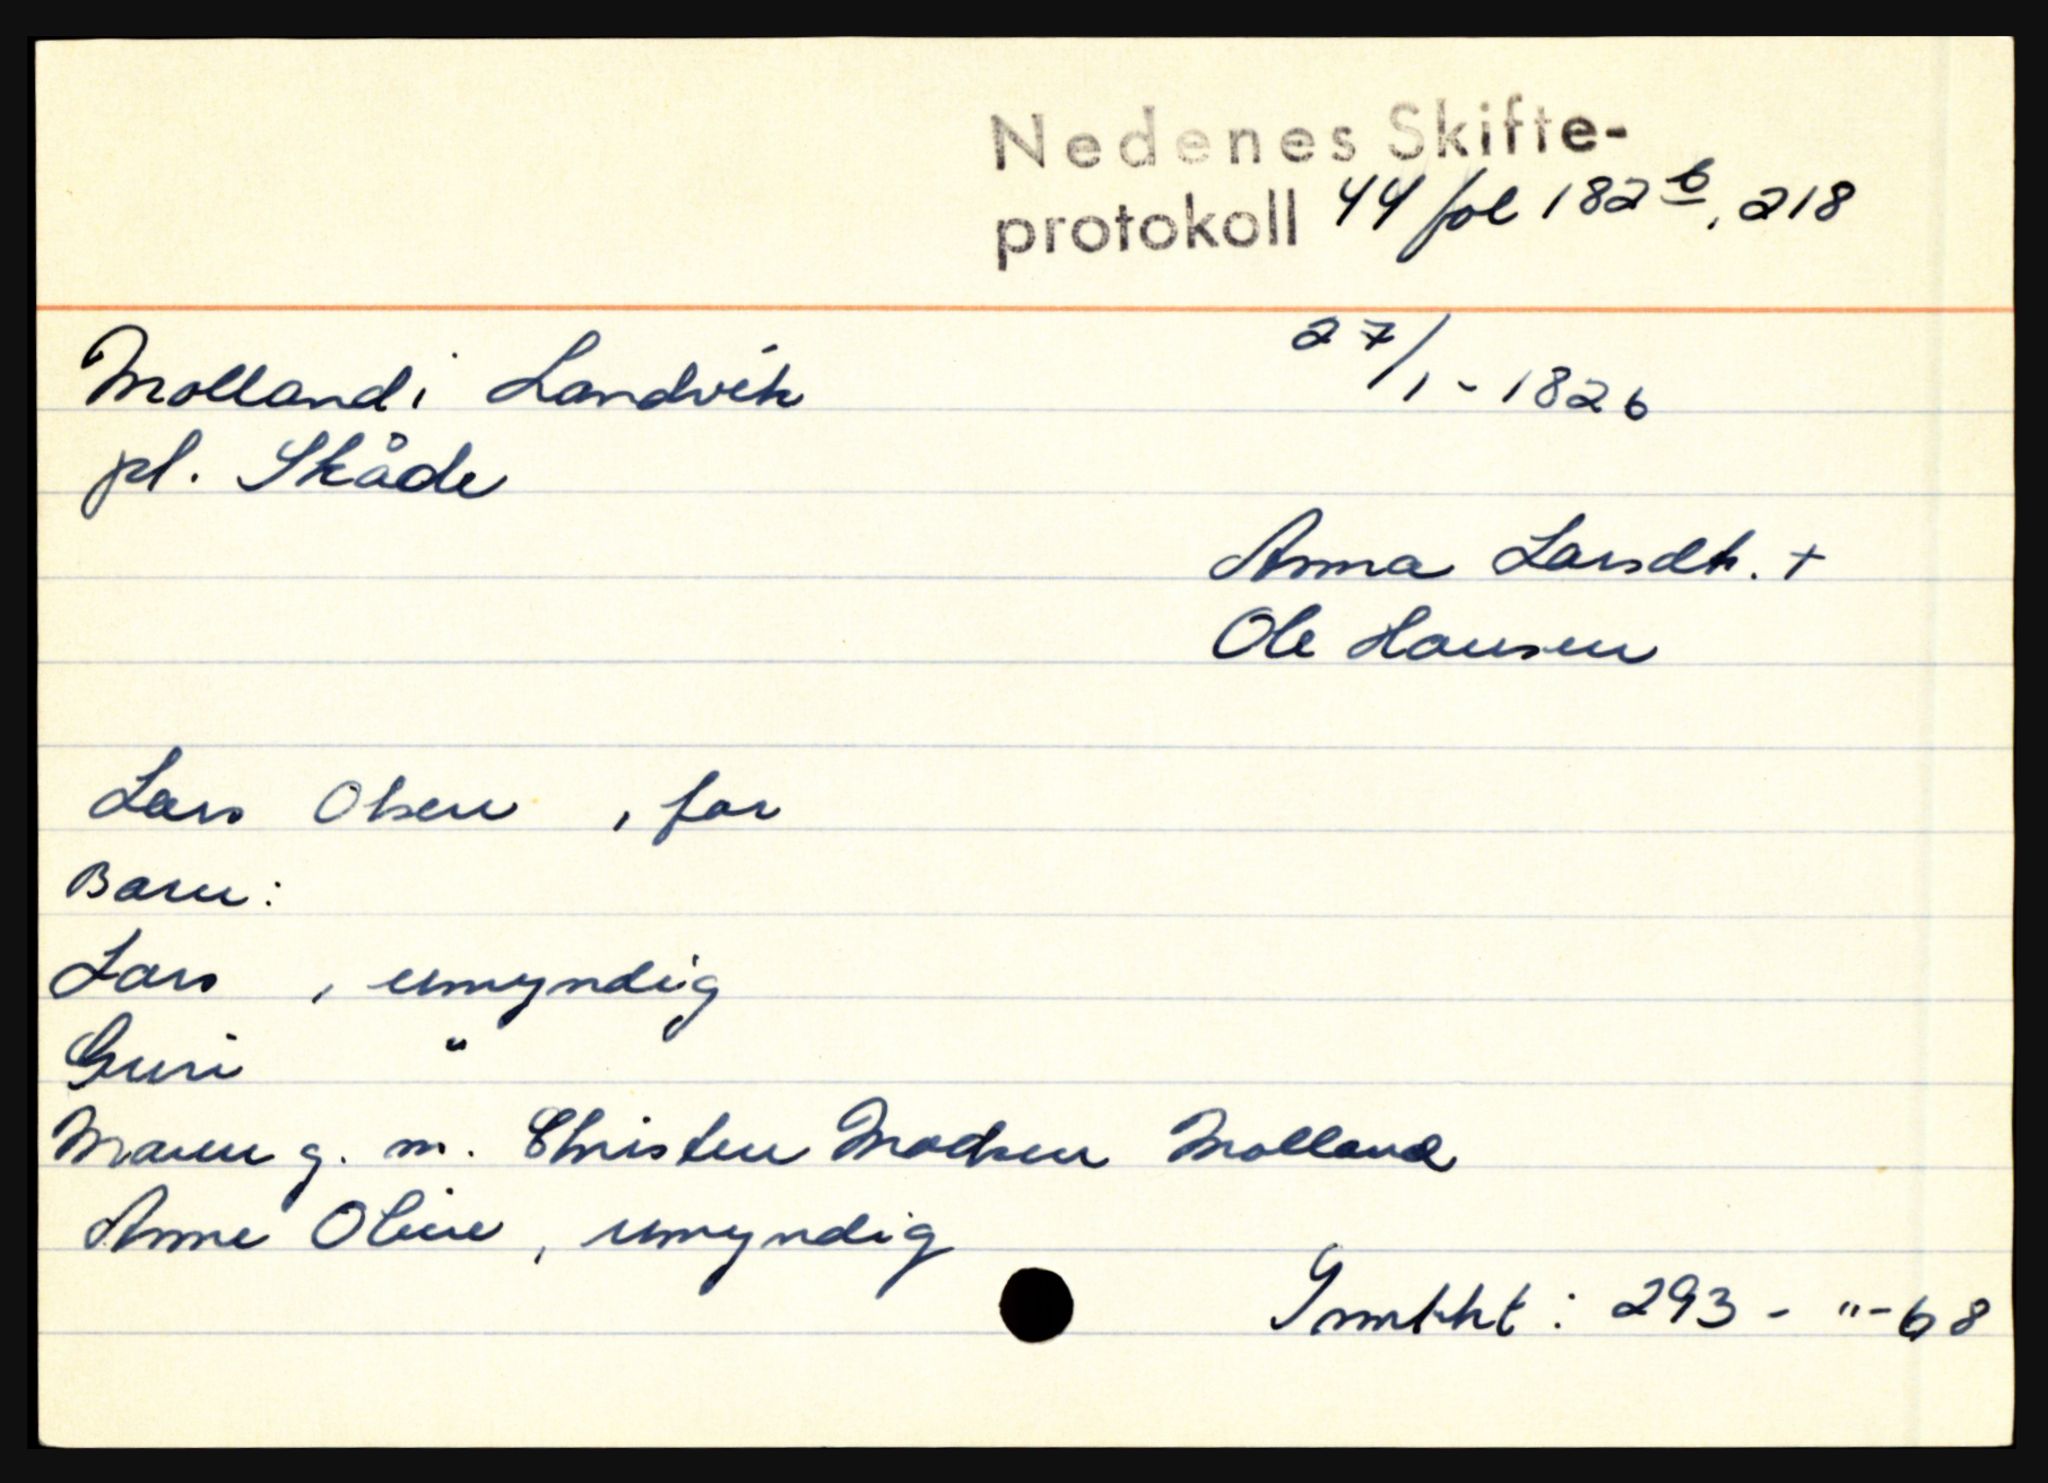 Nedenes Skifte-
protokoll 44 fol 182 b, 218
27/1 - 1826
Molland i Landvik
pl. Skåde
Anna Larsdtr. +
Ole Hansen
Lars Olsen , far
Barn:
Lars , umyndig
Guri "
Maren g. m. Christen Madsen Molland
Anne Oline, umyndig
: 293 - " - 68